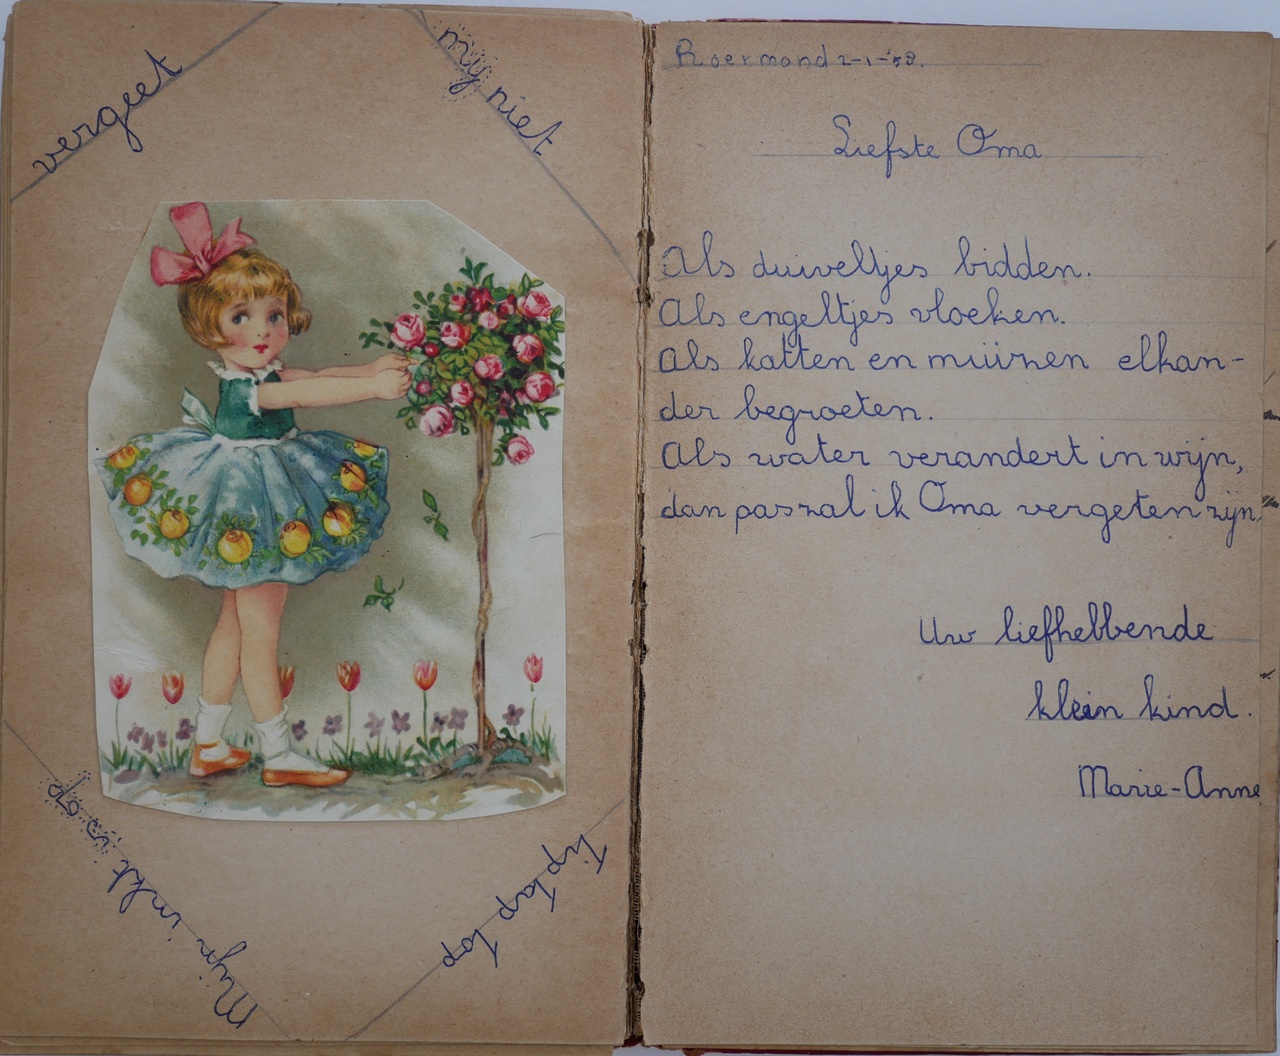 vergeet
mij niet
Tip tap top
Mijn inkt is op
Roermond 2-1-'58.
Liefste Oma
Als duiveltjes bidden.
Als engeltjes vloeken.
Als katten en muizen elkan-
der begroeten.
Als water verandert in wijn,
dan pas zal ik Oma vergeten zijn.
Uw liefhebbende
klein kind.
Marie-Anne